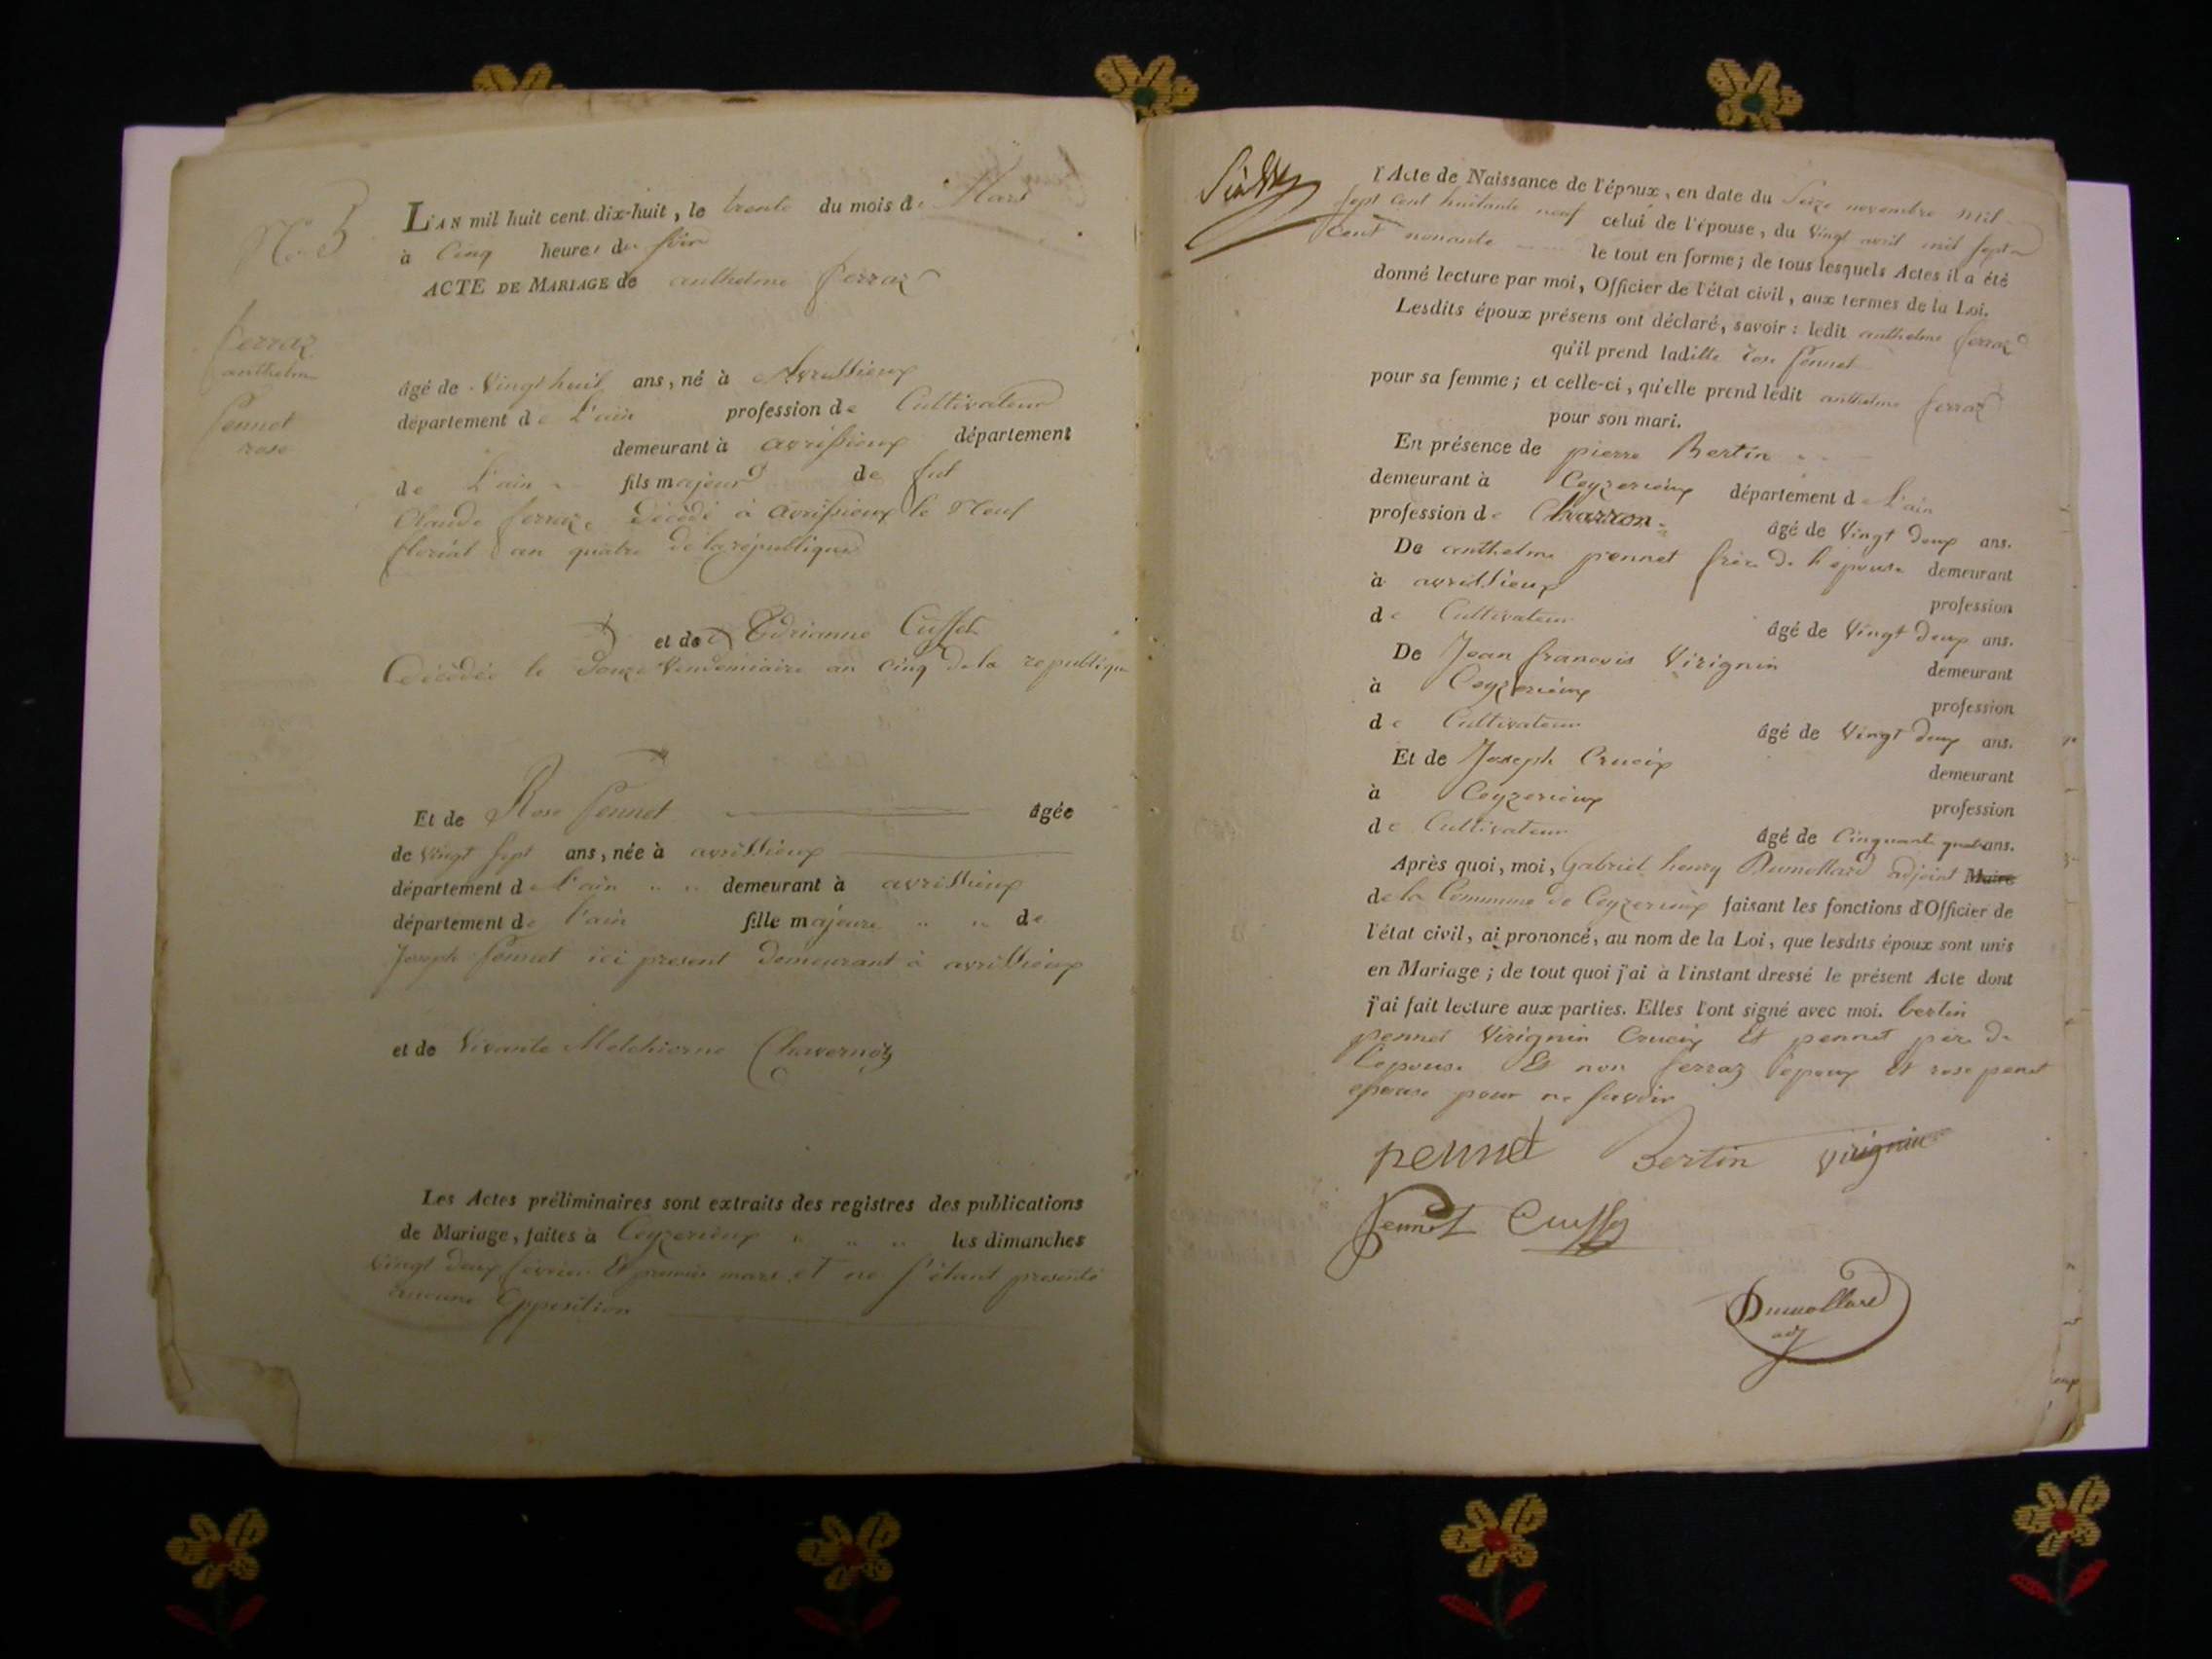 N.o 5
L'AN mil huit cent dix-huit, le trente du mois de Mars
à Cinq heures du soir
ACTE DE MARIAGE de anthelme ferraz
ferraz
anthelme
pennet
rose
âgé de Vingt huit ans, né à Avrissieux
département de L'ain profession de Cultivateur
demeurant à avrissieux département
de L'ain fils majeur de fut
Claude ferraz décédé à avrissieux le Neuf
floréal an quatre de la république
et de Edrianne Cusset
décédée le douze Vendemiaire an cinq de la republique
Et de Rose pennet âgée
de vingt sept ans, née à avrissieux
département de L'ain demeurant à avrissieux
département de l'ain fille majeure de
Joseph pennet ici present demeurant à avrissieux
et de Vivante Melchiorne Chavernoz
Les Actes préliminaires sont extraits des registres des publications
de Mariage, faites à Ceyzerieux les dimanches
vingt deux février Et premier mars et ne s'étant presenté
aucune Opposition
l'Acte de Naissance de l'époux, en date du Seize novembre mil
sept cent huitante neuf celui de l'épouse, du vingt avril mil sept
cent nonante le tout en forme; de tous lesquels Actes il a été
donné lecture par moi, Officier de l'état civil, aux termes de la Loi.
Lesdits époux présens ont déclaré, savoir: ledit anthelme ferraz
qu'il prend laditte rose pennet
pour sa femme; et celle-ci, qu'elle prend ledit anthelme ferraz
pour son mari.
En présence de pierre Bertin
demeurant à Ceyzerieux département de L'ain
profession de Charron âgé de Vingt deux ans.
De anthelme pennet frère de l'épouse demeurant
à avrissieux profession
de Cultivateur âgé de Vingt deux ans.
De Jean francois Virignin demeurant
à Ceyzerieux profession
de Cultivateur âgé de Vingt deux ans.
Et de Joseph Crucix demeurant
à Ceyzerieux profession
de Cultivateur âgé de Cinquante quatre ans.
Après quoi, moi, Gabriel henry Dumollard adjoint Maire
de la Commune de Ceyzerieux faisant les fonctions d'Officier de
l'état civil, ai prononcé, au nom de la Loi, que lesdits époux sont unis
en Mariage; de tout quoi j'ai à l'instant dressé le présent Acte dont
j'ai fait lecture aux parties. Elles l'ont signé avec moi. bertin
pennet Virignin Crucix Et pennet père de
l'epouse Et non ferraz l'epoux Et rose penet
epouse pour ne savoir
pennet Bertin virignin
pennet
Dumollard
adj